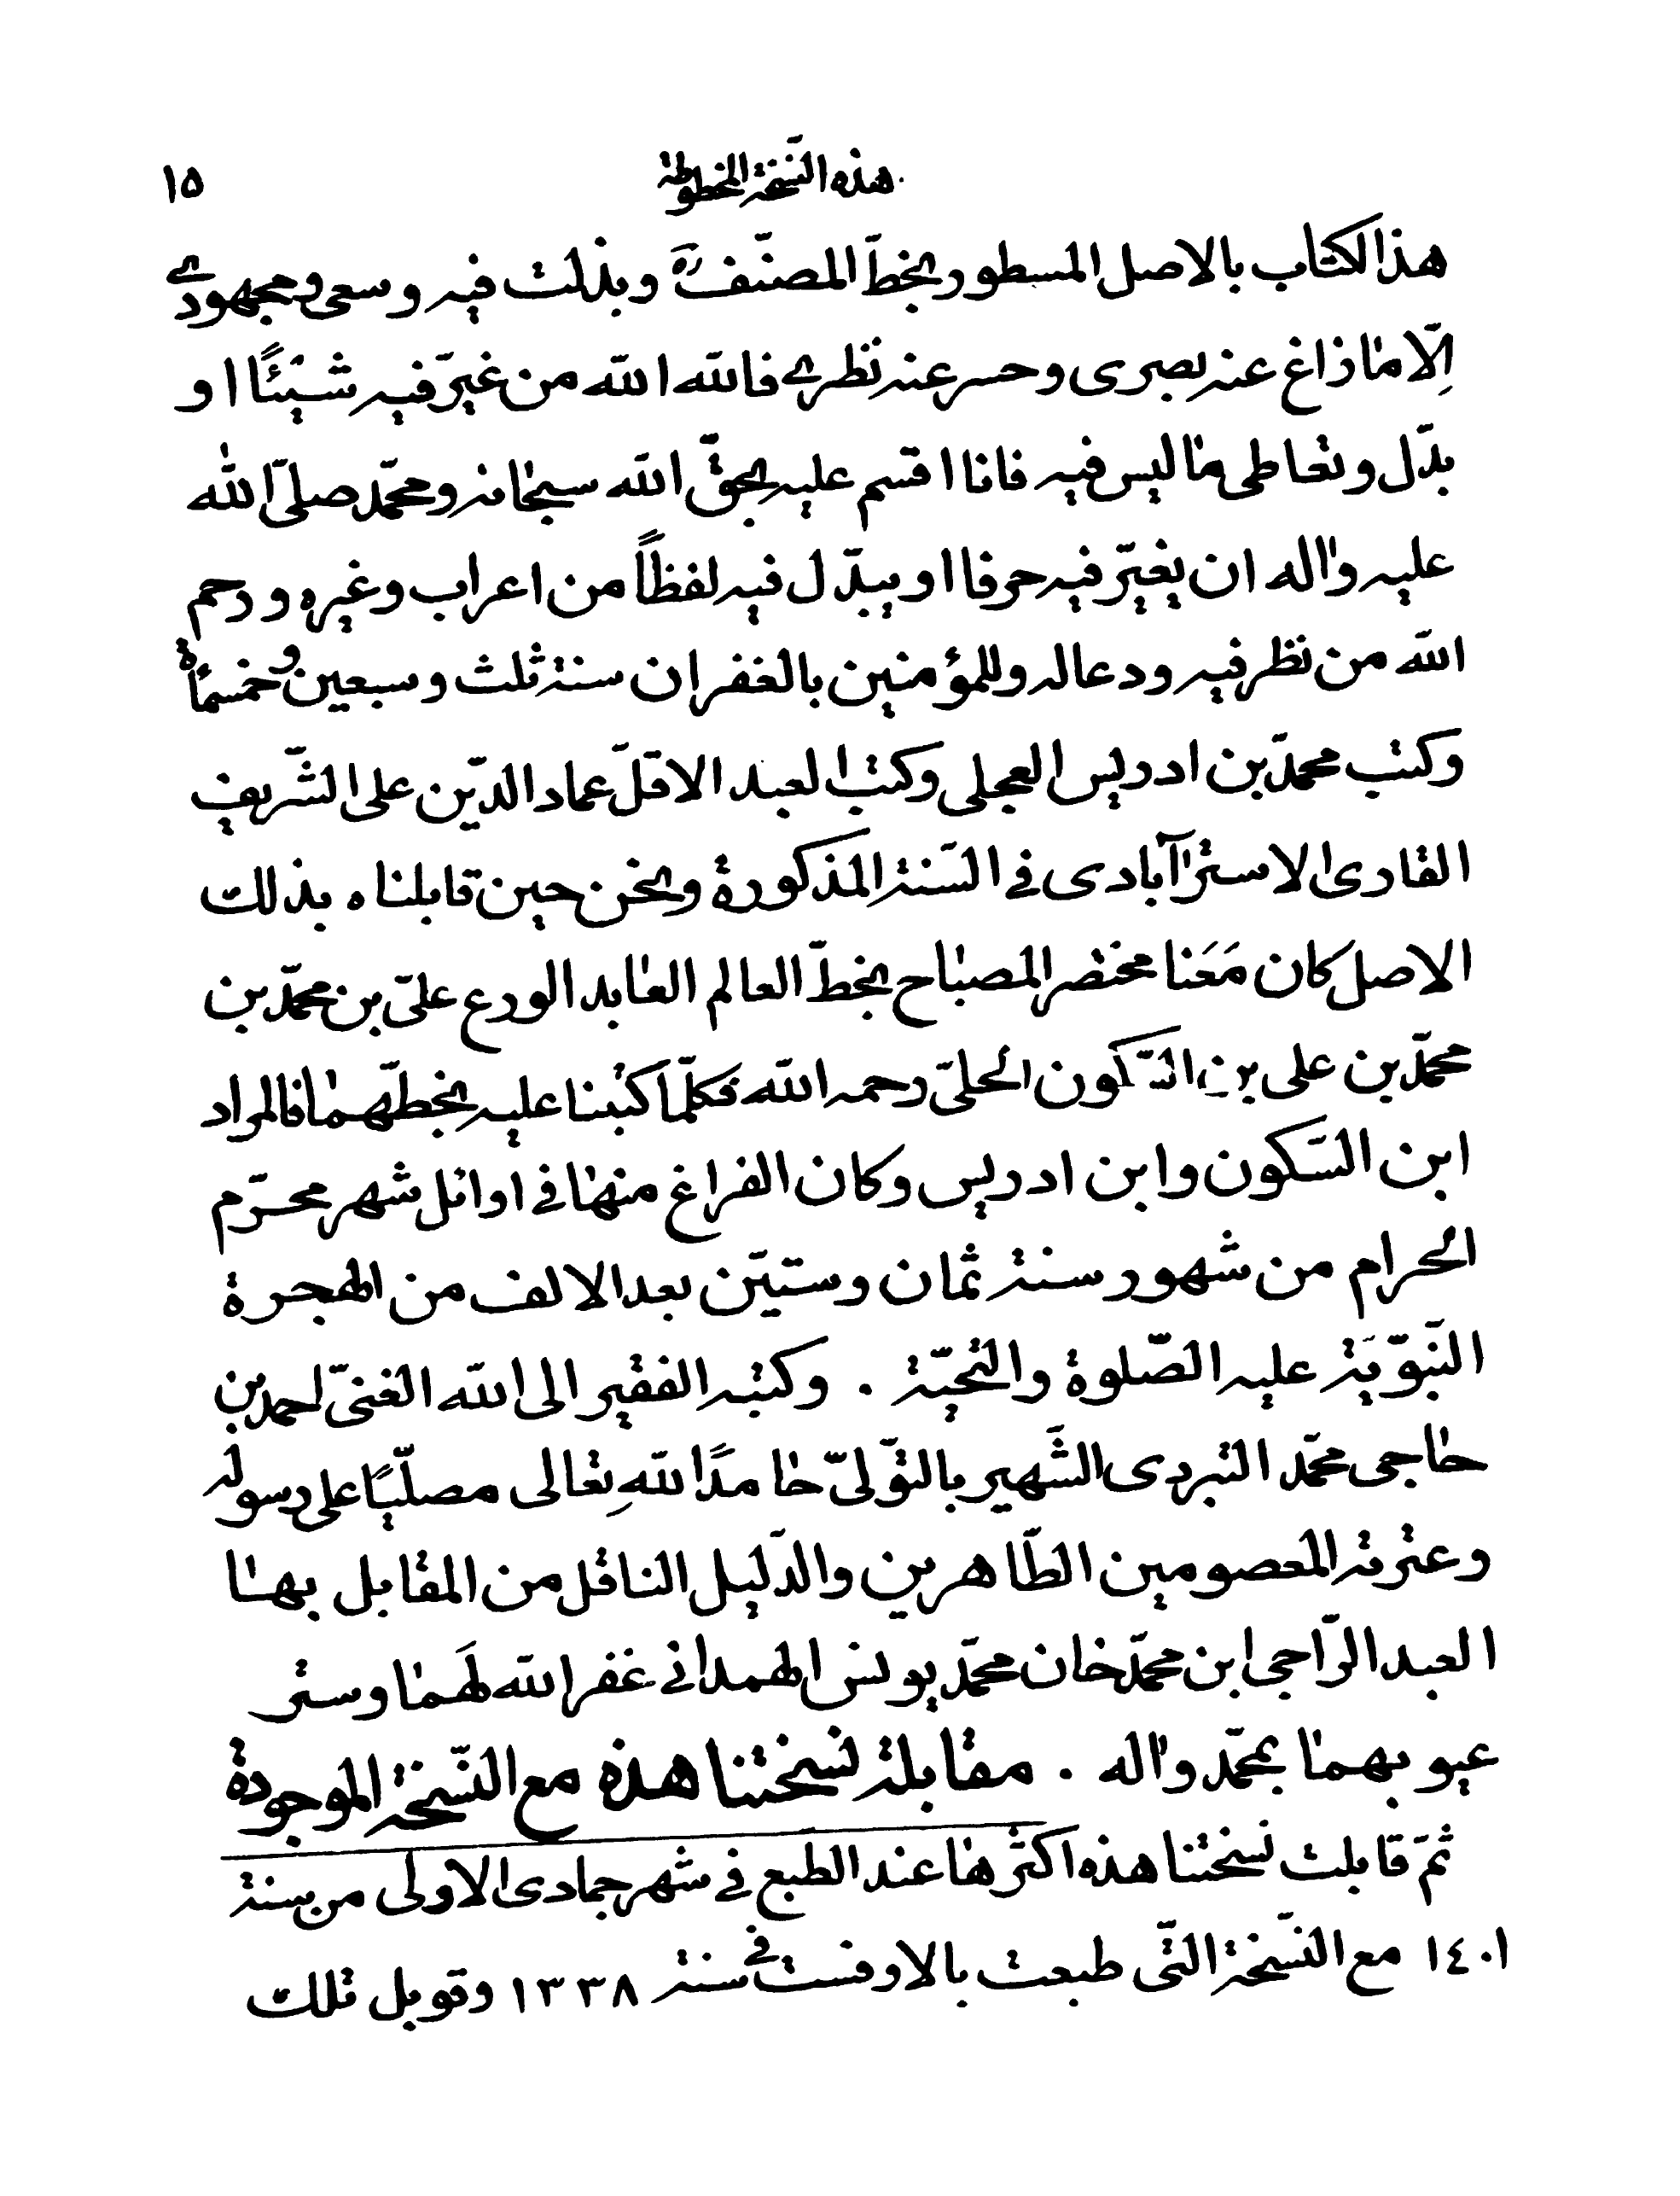 هذه النّسخة المخطوطة ١٥
هذا الكتاب بالاصل المسطور بخطّ المصنّف ره وبذلت فيه وسعى ومجهودي
اِلّا ما زاغ عنه بصرى وحسر عنه نظري فالله الله من غيّر فيه شيئًا او
بدّل وتعاطى ما ليس فيه فانا اقسم عليه بحقّ الله سبحانه ومحمّد صلّى الله
عليه واله ان يغيّر فيه حرفا او يبدّل فيه لفظاً من اعراب وغيره ورحم
الله من نظر فيه ودعا له وللمؤمنين بالغفران سنة ثلث وسبعين وخمسمأة
وكتب محمّد بن ادريس العجلى وكتب العبد الاقلّ عماد الدّين على الشّريف
القارى الاسترآبادى في السّنة المذكورة ونحن حين قابلناه بذلك
الاصل كان مَعَنا مختصر المصباح بخطّ العالم العابد الورع علىّ بن محمّد بن
محمّد بن على بن السّكون الحلىّ رحمه الله فكلّما كتبنا عليه بخطّهما فالمراد
ابن السّكون وابن ادريس وكان الفراغ منها في اوائل شهر محرّم
الحرام من شهور سنة ثمان وستّين بعد الالف من الهجرة
النّبوّيَة عليه الصّلوة والتحيّة . وكتبه الفقير الى الله الغنىّ احمد بن
حاجى محمّد الشّهير بالتوّلىّ حامدًا للهِ تعالى مصلّيًا على رسوله
وعترته المعصومين الطّاهرين والدّليل الناقل من المقابل بها
العبد الرّاجى ابن محمّد خان محمّد يونس الهمداني غفر الله لَهما وستر
عيوبهما بمحمّد واله . مقابلة نسختنا هذه مع النّسخة الموجودة
ثمّ قابلت نسختنا هذه اكثرها عند الطبع في شهر جمادى الاولى من سنة
١٤٠١ مع النّسخة التّى طبعت بالاوفست في سنة ١٣٣٨ وقوبل تلك